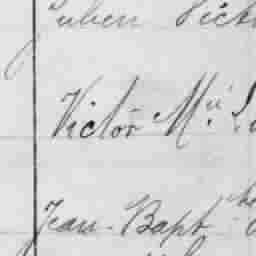 Julien Vict
Victor M.ie L
Jean-Bapt.